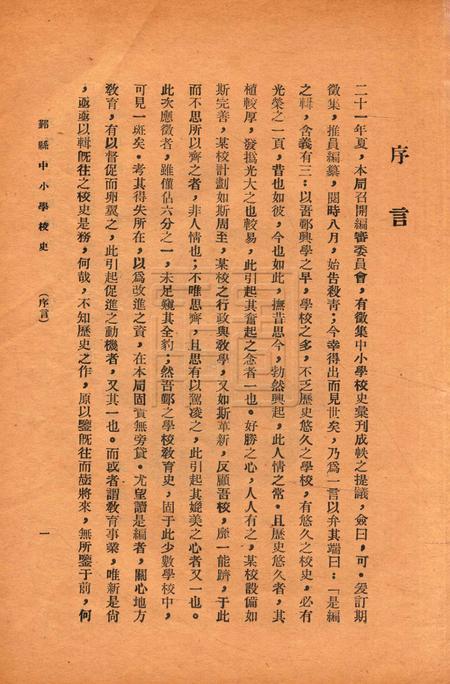 序言
二十一年夏，本局召開編審委員會，有徵集中小學校史彙刊成帙之提議，僉曰，可。爰訂期
徵集，推員編纂，閱時八月，始告殺青；今幸得出而見世矣，乃爲一言以弁其端曰：「是編
之輯，含義有三：以吾鄞興學之早，學校之多，不乏歷史悠久之學校，有悠久之校史，必有
光榮之一頁，昔也如彼，今也如此，撫昔思今，勃然興起，此人情之常。且歷史悠久者，其
植較厚，發撝光大之也較易，此引起其奮起之念者一也。好勝之心，人人有之，某校設備如
斯完善，某校計劃如斯周至，某校之行政與敎學，又如斯革新，反顧吾校，靡一能躋，于此
而不思所以齊之者，非人情也；不唯思齊，且思有以駕凌之，此引起其媲美之心者又一也。
此次應徵者，雖僅佔六分之一，未足窺其全豹，然吾鄞之學校敎育史，固于此少數學校中，
可見一斑矣。考其得失所在，以爲改進之資，在本局固責無旁貸。尤望讀是編者，關心地方
敎育，有以督促而卵翼之，此引起促進之動機者，又其一也。而或者謂敎育事業，唯新是尙
，亟亟以輯旣往之校史是務，何哉，不知歷史之作，原以鑒旣往而啟將來，無所鑒于前，何
鄞縣中小學校史　（序言）　一